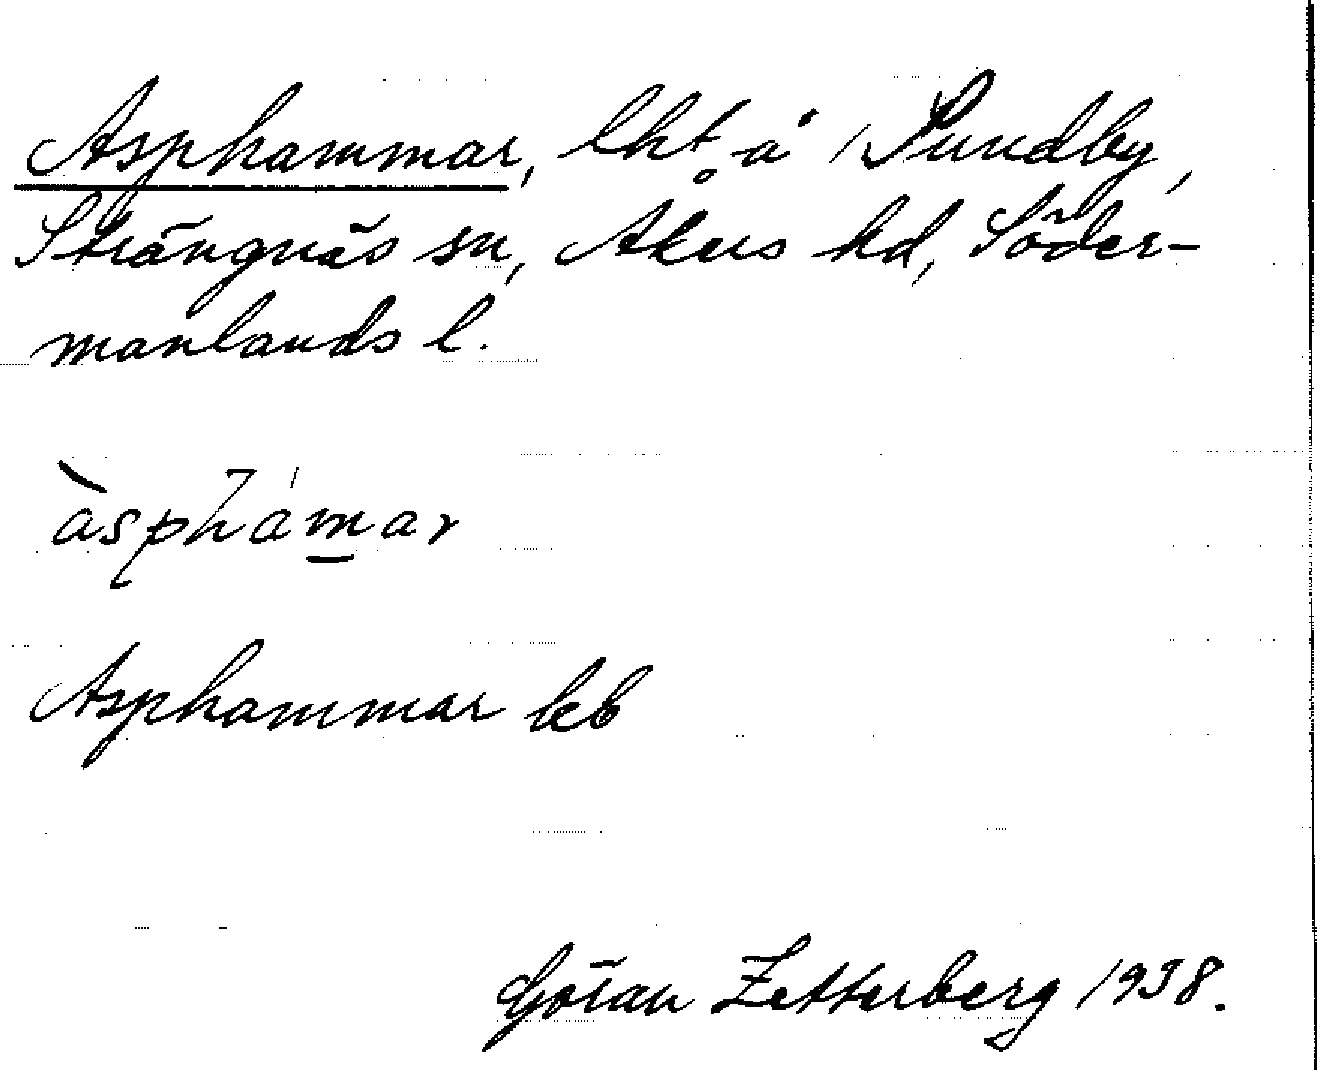 Asphammar, lht å Sundby,
Strängnäs sn, Åkers hd, Söder-
manlands l.
àsphámar
Asphammar kb
Göran Zetterberg 1938.